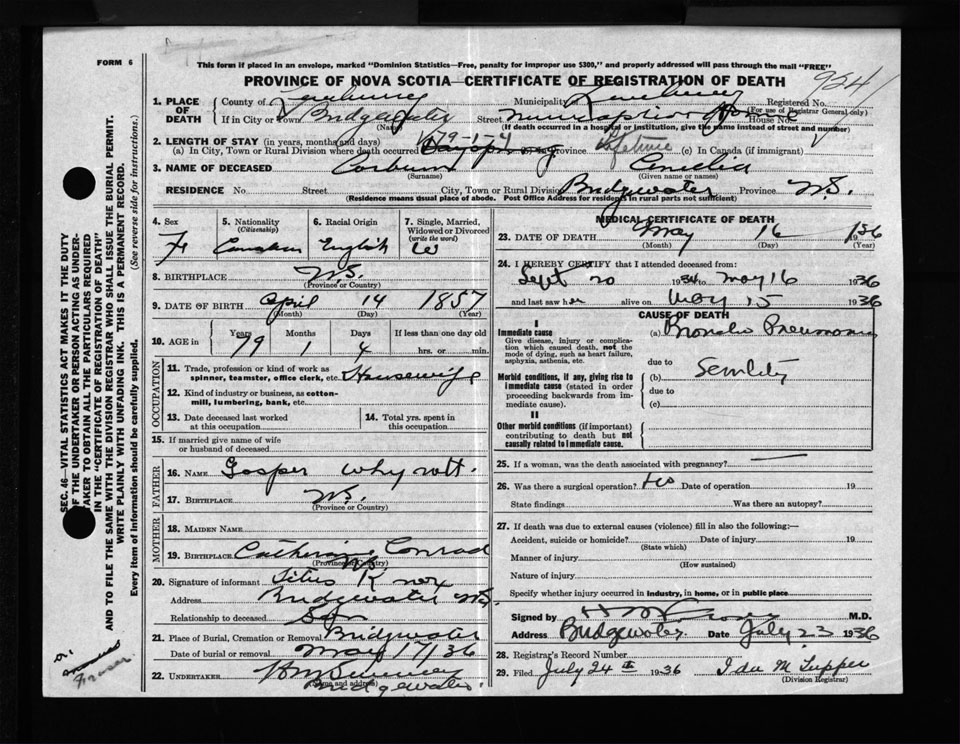 FORM 6
This form if placed in an envelope, marked "Dominion Statistics—Free, penalty for improper use $300," and properly addressed will pass through the mail "FREE"
PROVINCE OF NOVA SCOTIA—CERTIFICATE OF REGISTRATION OF DEATH
954
1. PLACE OF DEATH
County of Lunenburg Municipality Lunenburg Registered No.
(For use of Registrar General only)
If in City or Town Bridgewater Street House No.
(Name)
(If death occurred in a hospital or institution, give the name instead of street and number)
2. LENGTH OF STAY (in years, months and days) 79-1-4
(a) In City, Town or Rural Division where death occurred province Lifetime (c) In Canada (if immigrant)
3. NAME OF DECEASED Corbum
(Surname) (Given name or names)
RESIDENCE No. Street City, Town or Rural Division Bridgewater Province N.S.
(Residence means usual place of abode. Post Office Address for residents in rural parts not sufficient)
4. Sex F.
5. Nationality (Citizenship) Canadian
6. Racial Origin English
7. Single, Married, Widowed or Divorced (write the word) W
8. BIRTHPLACE N.S.
(Province or Country)
9. DATE OF BIRTH April 14 1857
(Month) (Day) (Year)
10. AGE in Years Months Days If less than one day old
79 1 4 hrs. or min.
OCCUPATION
11. Trade, profession or kind of work as spinner, teamster, office clerk, etc. Housewife
12. Kind of industry or business, as cotton-mill, lumbering, bank, etc.
13. Date deceased last worked at this occupation
14. Total yrs. spent in this occupation
15. If married give name of wife or husband of deceased
FATHER
16. NAME Gosper Whynott
17. BIRTHPLACE N.S.
(Province or Country)
MOTHER
18. MAIDEN NAME
19. BIRTHPLACE Catherine Conrad
(Province or Country)
20. Signature of informant Titus Knox
Address Bridgewater N.S.
Relationship to deceased Son
21. Place of Burial, Cremation or Removal Bridgewater
Date of burial or removal May 17/36
22. UNDERTAKER
(Name and address)
Bridgewater
MEDICAL CERTIFICATE OF DEATH
23. DATE OF DEATH May 16 1936
(Month) (Day) (Year)
24. I HEREBY CERTIFY that I attended deceased from:
Sept 20 1934 to May 16 1936
and last saw her alive on May 15 1936
CAUSE OF DEATH
I
Immediate cause (a) Broncho Pneumonia
Give disease, injury or complication which caused death, not the mode of dying, such as heart failure, asphyxia, asthenia, etc.
due to
Morbid conditions, if any, giving rise to immediate cause (stated in order proceeding backwards from immediate cause).
(b) Senility
due to
(c)
II
Other morbid conditions (if important) contributing to death but not causally related to immediate cause.
25. If a woman, was the death associated with pregnancy?
26. Was there a surgical operation? No Date of operation 19
State findings Was there an autopsy?
27. If death was due to external causes (violence) fill in also the following:—
Accident, suicide or homicide? Date of injury 19
(State which)
Manner of injury
(How sustained)
Nature of injury
Specify whether injury occurred in industry, in home, or in public place
Signed by M.D.
Address Bridgewater Date July 23 1936
28. Registrar's Record Number
29. Filed July 24th 1936 Ida M Tupper
(Division Registrar)
SEC. 46—VITAL STATISTICS ACT MAKES IT THE DUTY
OF THE UNDERTAKER OR PERSON ACTING AS UNDER-
TAKER TO OBTAIN ALL THE PARTICULARS REQUIRED
IN THE "CERTIFICATE OF REGISTRATION OF DEATH"
AND TO FILE THE SAME WITH THE DIVISION REGISTRAR WHO SHALL ISSUE THE BURIAL PERMIT.
WRITE PLAINLY WITH UNFADING INK. THIS IS A PERMANENT RECORD.
Every item of information should be carefully supplied. (See reverse side for instructions.)